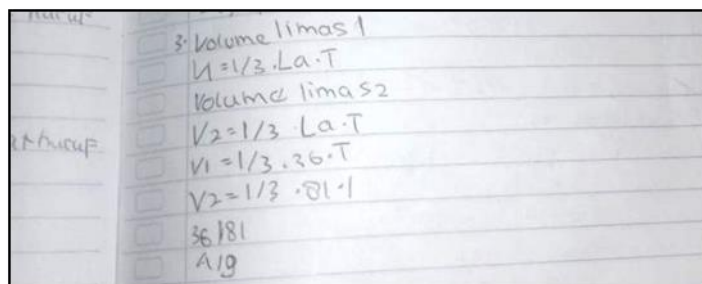 huruf
3. Volume limas 1
V1 = 1/3 . La . T
Volume limas 2
V2 = 1/3 . La . T
huruf
V1 = 1/3 . 36 . T
V2 = 1/3 . 81 . 1
36/81
4/9